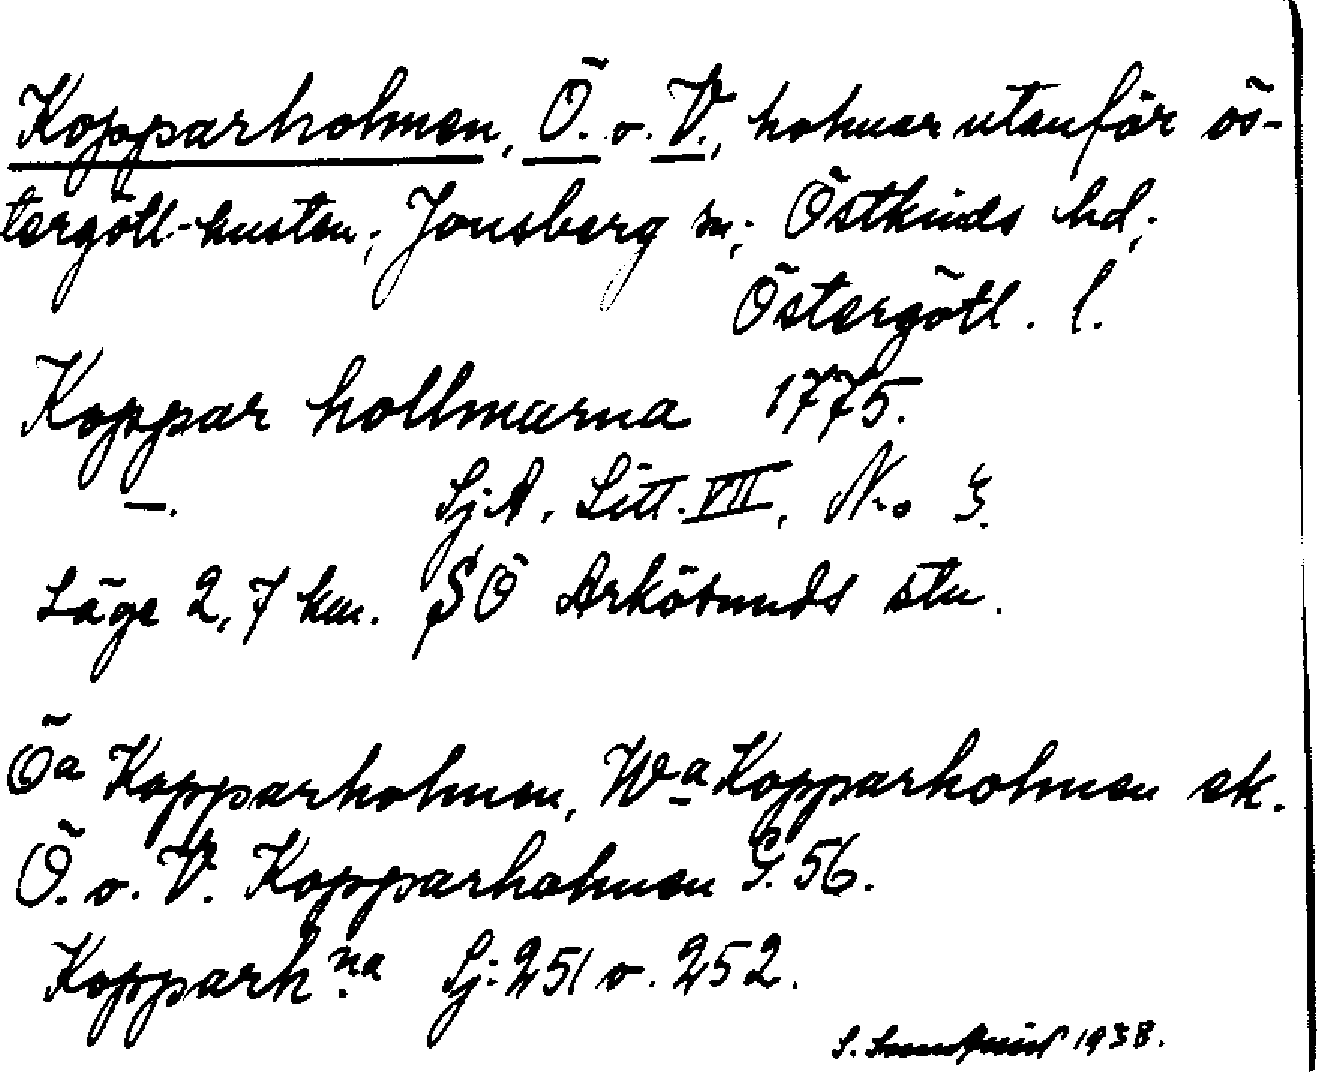 Kopparholmen, Ö. o. V., holmar utanför ös-
tergötl-kusten; Jonsberg sn; Östkinds hd;
Östergötl. l.
Koppar hollmarna 1775.
—. Sj.A. Litt. VII, No 3.
Läge 2,7 km. SÖ Arkösunds stn.
Öa Kopparholmen, Wa Kopparholmen ek.
Ö. o. V. Kopparholmen G. 56.
Kopparhna Sj: 251 o. 252.
S. 1938.